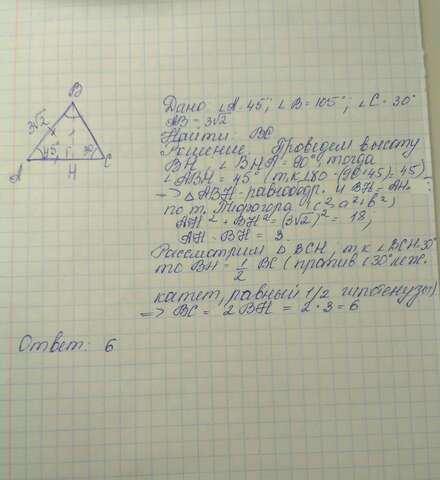 B
3√2
45°
30°
A
H
C
Дано: ∠A=45°; ∠B=105°; ∠C=30°
AB=3√2
Найти: BC
Решение. Проведем высоту
BH, ∠BHA=90° тогда
∠ABH=45° (т.к 180-(90+45)=45)
=> △ABH-равнобедр. и BH=AH.
по т. Пифагора (c²=a²+b²)
AH²+BH²=(3√2)²=18,
AH=BH=3.
Рассмотрим △BCH, т.к ∠BCH=30°
то BH=1/2 BC (против ∠30° леж.
катет, равный 1/2 гипотенузы)
=> BC = 2BH = 2·3=6
Ответ: 6